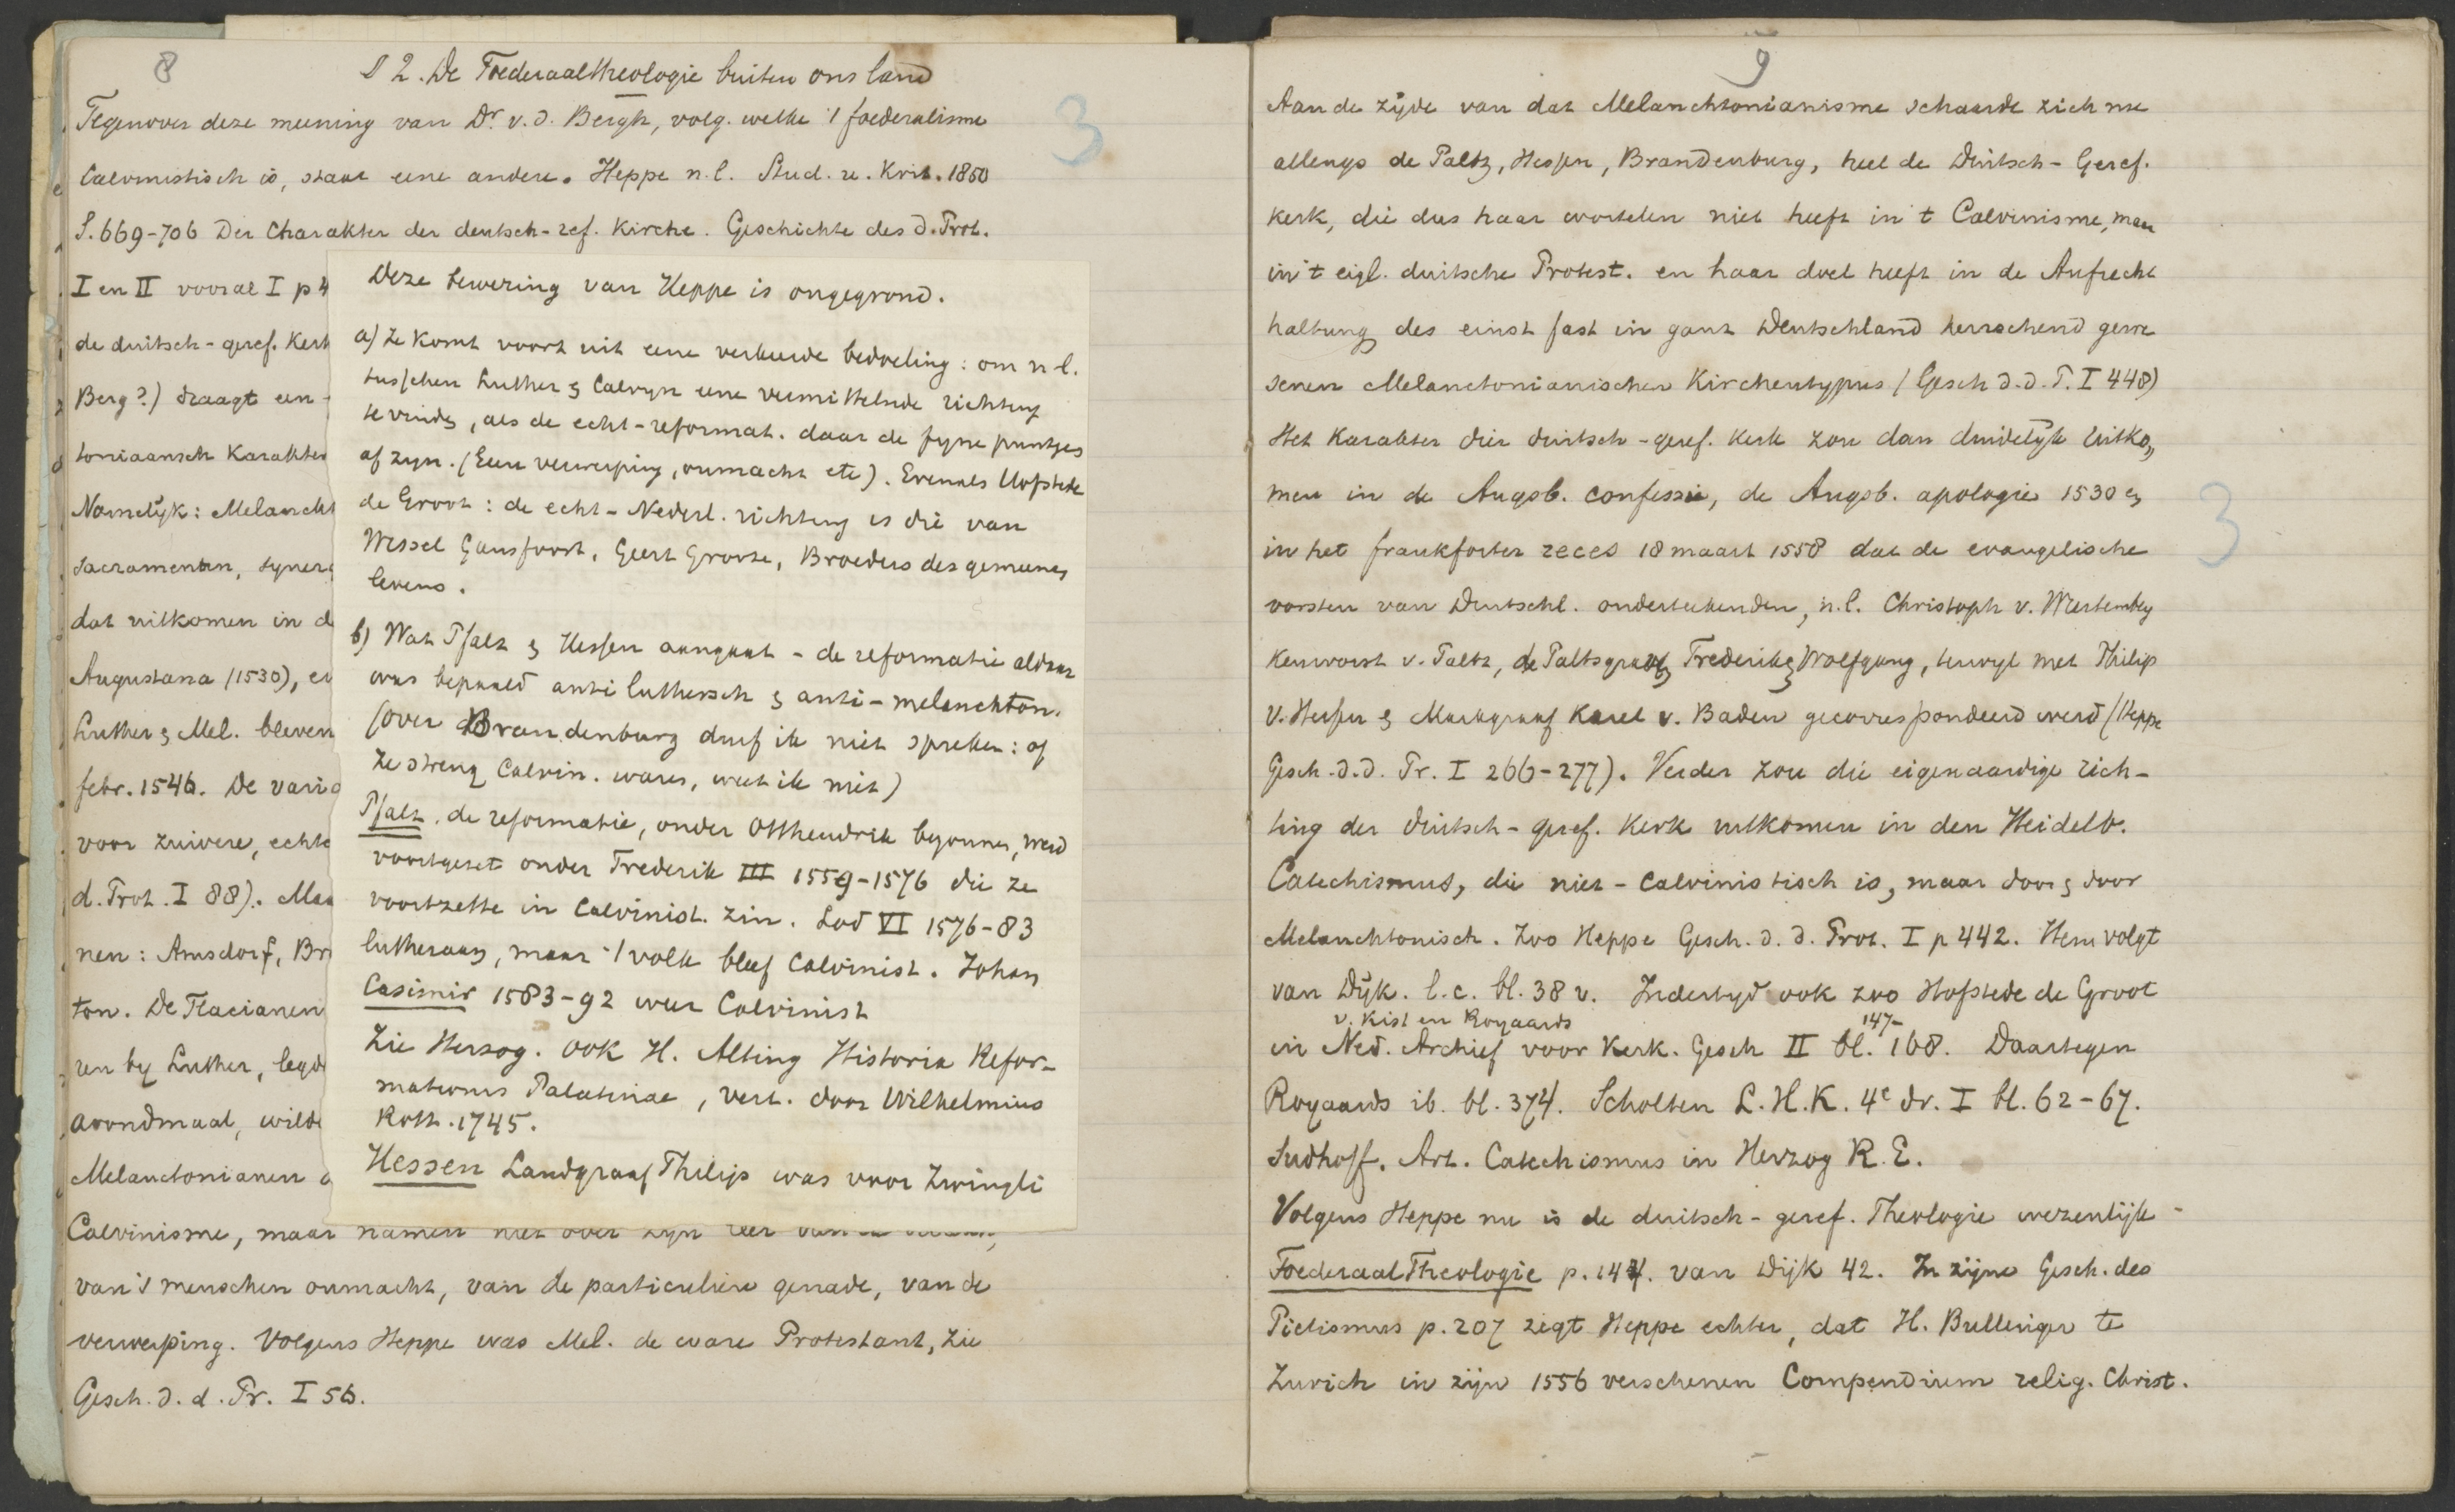 8
§ 2. De Foederaaltheologie buiten ons land
Tegenover deze meening van Dr. v. d. Bergh, volg. welke 't foederalisme
Calvinistisch is, staat eene andere. Heppe n.l. Stud. u. Krit. 1850
S. 669-706 Der Charakter der deutsch-ref. Kirche. Geschichte des d. Prot.
I en II vooral I p 4
de duitsch-geref. Kerk
Berg?) draagt een
toniaansch Karakter
Namelijk: Melancht
sacramenten, syner
dat uitkomen in d
Augustana (1530), e
Luther & Mel. bleven
febr. 1546. De vari
voor zuivere, echte
d. Prot. I 88). Maa
nen: Amsdorf, Br
ton. De Flacianen
ren by Luther, legd
avondmaal, wilde
Melanctonianen
Calvinisme, maar namen niet over zyn leer van de
van 's menschen onmacht, van de particuliere genade, van de
verwerping. Volgens Heppe was Mel. de ware Protestant, zie
Gesch. d. d. Pr. I 56.
3
Deze bewering van Heppe is ongegrond.
a) Ze komt voort uit eene verkeerde bedoeling: om n.l.
tusschen Luther & Calvyn eene vermittelnde richting
te vinden, als de echt-reformat. daar de fyne puntjes
af zyn. (Eeuw verwerping, onmacht etc). Evenals Hofstede
de Groot: de echt-Nederl. richting is die van
Wessel Gansfoort, Geert Groote, Broeders des gemeenen
levens.
b) Wat Pfalz & Hessen aangaat - de reformatie aldaar
was bepaald anti luthersch & anti-melanchton.
(over Brandenburg durf ik niet spreken: of
ze streng Calvin. waren, weet ik niet)
Pfalz. de reformatie, onder Otthendrik begonnen, werd
voortgezet onder Frederik III 1559-1576 die ze
voortzette in Calvinist. zin. Lod VI 1576-83
lutheraan, maar 't volk bleef Calvinist. Johan
Casimir 1583-92 weer Calvinist
Zie Herzog. ook H. Alting Historia Refor-
mationis Palatinae, vert. door Wilhelmius
Rott. 1745.
Hessen Landgraaf Philips was voor Zwingli
9
Aan de zijde van dat Melanchtonianisme schaarde zich nu
allengs de Paltz, Hessen, Brandenburg, heel de Duitsch-Geref.
kerk, die dus haar wortelen niet heeft in 't Calvinisme, maar
in 't eigl. duitsche Protest. en haar doel heeft in de Aufrecht
haltung des einst fast in ganz Deutschland herrschend gewe
senen Melanctonianischen Kirchentypus (Gesch d. d. P. I 448)
Het Karakter dier duitsch-geref. Kerk zou dan duidelyk uitko„
men in de Augsb. confessie, de Augsb. apologie 1530 en
in het frankforter reces 18 maart 1558 dat de evangelische
vorsten van Deutschl. onderteekenden, n.l. Christoph v. Wurtemberg
Keurvorst v. Paltz, de Paltsgraven Frederik & Wolfgang, terwyl met Philips
v. Hessen & Markgraaf Karel v. Baden gecorrespondeerd werd (Heppe
Gesch. d. d. Pr. I 266-277). Verder zou die eigenaardige rich-
ting der duitsch-geref. Kerk uitkomen in den Heidelb.
Catechismus, die niet-Calvinistisch is, maar door & door
Melanchtonisch. Zoo Heppe Gesch. d. d. Prot. I p 442. Hem volgt
van Dijk. l.c. bl. 38 v. Indertyd ook zoo Hofstede de Groot
v. Kist en Royaards 147-
in Ned. Archief voor Kerk. Gesch II bl. 168. Daartegen
Royaards ib. bl. 374. Scholten L.H.K. 4e dr. I bl. 62-67.
Sudhoff. Art. Catechismus in Herzog R.E.
Volgens Heppe nu is de duitsch-geref. Theologie wezenlijk
FoederaalTheologie p. 144. van Dijk 42. In zijne Gesch. des
Pietismus p. 207 zegt Heppe echter, dat H. Bullinger te
Zurich in zijn 1556 verschenen Compendium relig. Christ.
3